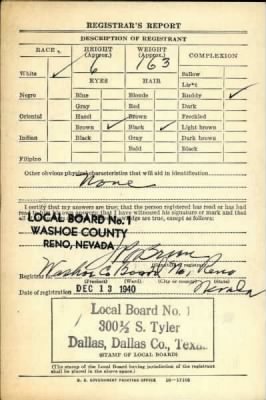 REGISTRAR'S REPORT
DESCRIPTION OF REGISTRANT
RACE HEIGHT (Approx.) WEIGHT (Approx.) COMPLEXION
6 163
White ✓ Sallow
EYES HAIR Light
Negro Blue Blonde Ruddy ✓
Gray Red Dark
Oriental Hazel Brown Freckled
Brown ✓ Black ✓ Light brown
Indian Black Gray Dark brown
Bald Black
Filipino
Other obvious physical characteristics that will aid in identification
None
I certify that my answers are true; that the person registered has read or has had
read to him his own answers; that I have witnessed his signature or mark and that
all of his answers of which I have knowledge are true, except as follows:
LOCAL BOARD No. 1
WASHOE COUNTY
RENO, NEVADA
registrar)
Registrar for Washoe Co Board No 1, Reno
(Precinct) (Ward) (City or county) (State)
Nevada
Date of registration DEC 13 1940
Local Board No. 1
300½ S. Tyler
Dallas, Dallas Co., Texas
(STAMP OF LOCAL BOARD)
(The stamp of the Local Board having jurisdiction of the registrant
shall be placed in the above space.)
U. S. GOVERNMENT PRINTING OFFICE 16—17105